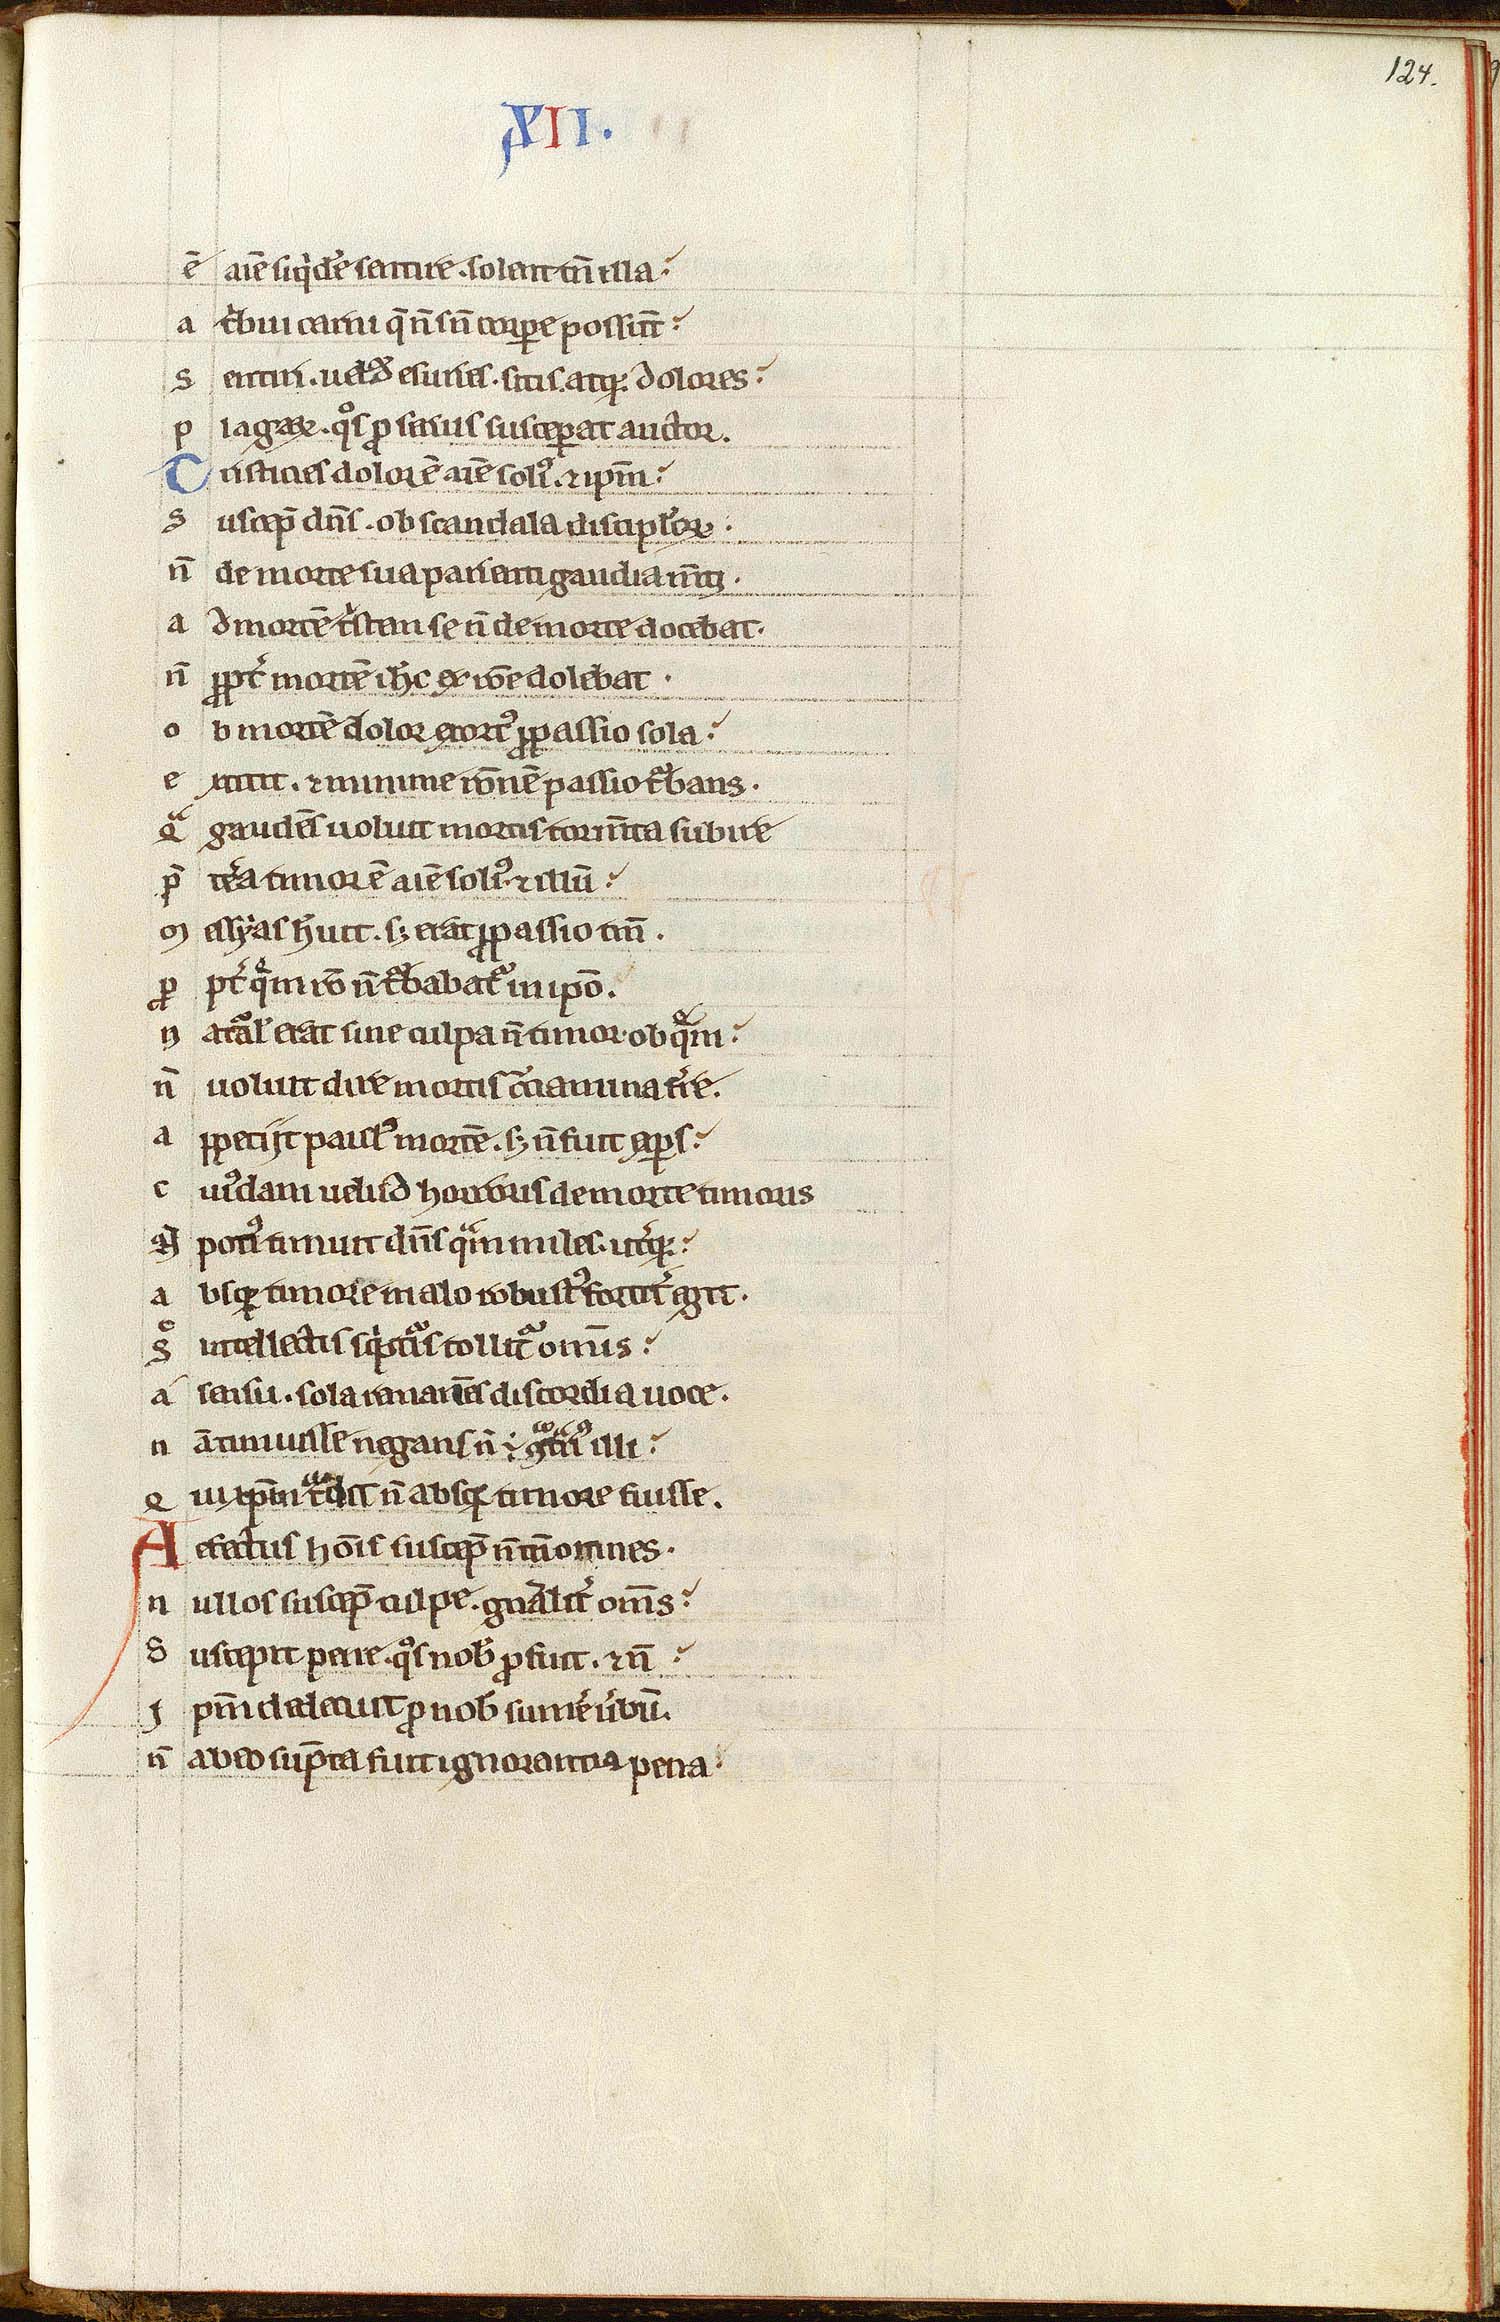 124.
XII.
ē aīe siq̇dē sentire. solent tn̄ illa
a tͥbui carni q̄ n̄ sn̄ corꝑe possūt
s entiri. uelud esuries. sitis. atqꝫ dolores
p lagaꝝ. qͦs ꝓ seruis susceꝑat auctor.
T risticies dolorē aīe soliꝰ. ⁊ ip̄m
s uscep̄ dn̄s. ob scandala discipłoꝝ.
n̄ de morte sua parienti gaudia
a d mortē tͥstem se n̄ de morte docebat.
n̄ ꝓpt̉ mortē ih̄c dolebat.
o b mortē dolor exortꝰ ꝓpassio sola
e xtitit. ⁊ minime rōnē passio tͬbans.
qͣ gaudēs uoluit mortis torm̄ta subire
p̄ t̉ea timorē aīe soliꝰ. ⁊ illū
m essyas h̄uit. sꝫ erat ꝓpassio tm̄.
ꝓ pt̉ qͣm rō n̄ tͬbabatͬ in ip̄o.
n atͬał erat sine culpa n̄ timor. ob qͣm
n̄ uoluit dire mortis c̄tamina f̉re.
a ppetijt paulꝰ mortē. sꝫ n̄ fuit exꝑs
c uiꝰdam uelud horroris de morte timoris
N̄ potiꝰ timuit dn̄s qͣm miles. ut̉qꝫ
a bsqꝫ timore malo robustꝰ fortit̉ agit.
sͦ intellectis sc̉pt̉is tollitͬ omīs
a sensu. sola remanēs discordia uoce.
n ā timuisse negans n̄ illi
q ui xp̄m n̄ absqꝫ timore fuisse.
A efectus hoīs suscep̄ n̄ tn̄ omnes.
n ullos suscep̄ culpe. gn̄alit̉ om̄s
S uscepit pene. qͦs nob̄ ꝓfuit. ⁊ n̄
i pm̄ dedecuit ꝓ nob̄ sum̉e ūbū.
n̄ ab eo sūpta fuit ignorantia pena